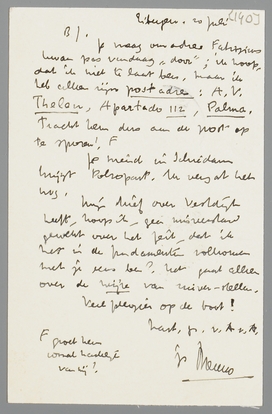 Eibergen, 20 juli [1940]
B/.
Je vraag om adres Fabricius
kwam pas vandaag "door"; ik hoop,
dat ik niet te laat ben, maar ik
heb alleen zijn postadres: A. V.
Thelen, Apartado 112, Palma.
Tracht hem dus aan de post op
te sporen! F
Je vriend in Schiedam
krijgt Politiepost. Ik vergat het
nog.
Mijn brief over Vestdijk
heeft, hoop ik, geen misverstand
gewekt over het feit, dat ik
het in de fundamenten volkomen
met je eens ben? Het gaat alleen
over de wijze van
Veel plezier op de boot!
hart. gr. v. A v. A.
je Menno
F groet hem
vooral hartelijk
van mij!